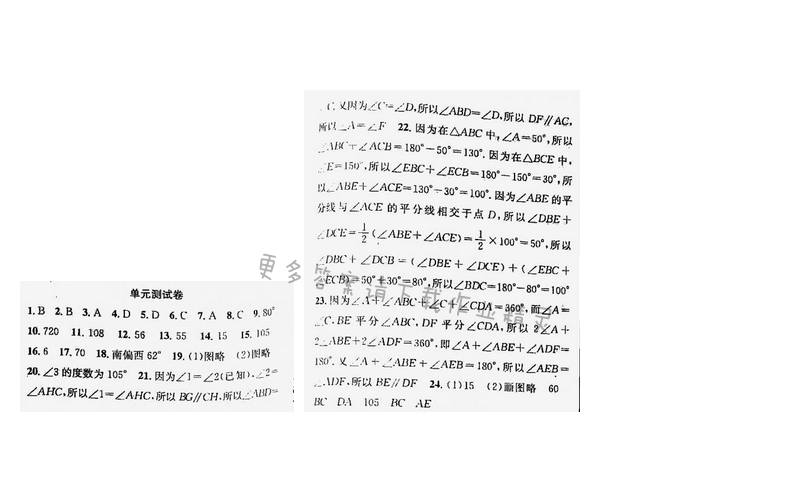 单元测试卷
1. B 2. B 3. A 4. D 5. D 6. C 7. A 8. C 9. 80°
10. 720 11. 108 12. 56 13. 55 14. 15 15. 105
16. 6 17. 70 18. 南偏西 62° 19. (1)图略 (2)图略
20. ∠3 的度数为 105° 21. 因为∠1=∠2(已知),∠2=
∠AHC,所以∠1=∠AHC,所以 BG∥CH,所以∠ABD=
C. 又因为∠C=∠D,所以∠ABD=∠D,所以 DF∥AC,
所以∠A=∠F 22. 因为在△ABC 中,∠A=50°,所以
∠ABC+∠ACB=180°-50°=130°. 因为在△BCE 中,
∠E=150°,所以∠EBC+∠ECB=180°-150°=30°,所
以∠ABE+∠ACE=130°-30°=100°. 因为∠ABE 的平
分线与∠ACE 的平分线相交于点 D,所以∠DBE+
∠DCE=1/2(∠ABE+∠ACE)=1/2×100°=50°,所以
∠DBC+∠DCB=(∠DBE+∠DCE)+(∠EBC+
∠ECB)=50°+30°=80°,所以∠BDC=180°-80°=100°
23. 因为∠A+∠ABC+∠C+∠CDA=360°,而∠A=
∠C,BE 平分∠ABC,DF 平分∠CDA,所以 2∠A+
2∠ABE+2∠ADF=360°,即∠A+∠ABE+∠ADF=
180°. 又∠A+∠ABE+∠AEB=180°,所以∠AEB=
∠ADF,所以 BE∥DF 24. (1)15 (2)画图略 60
BC DA 105 BC AE
更多答案请下载作业精灵